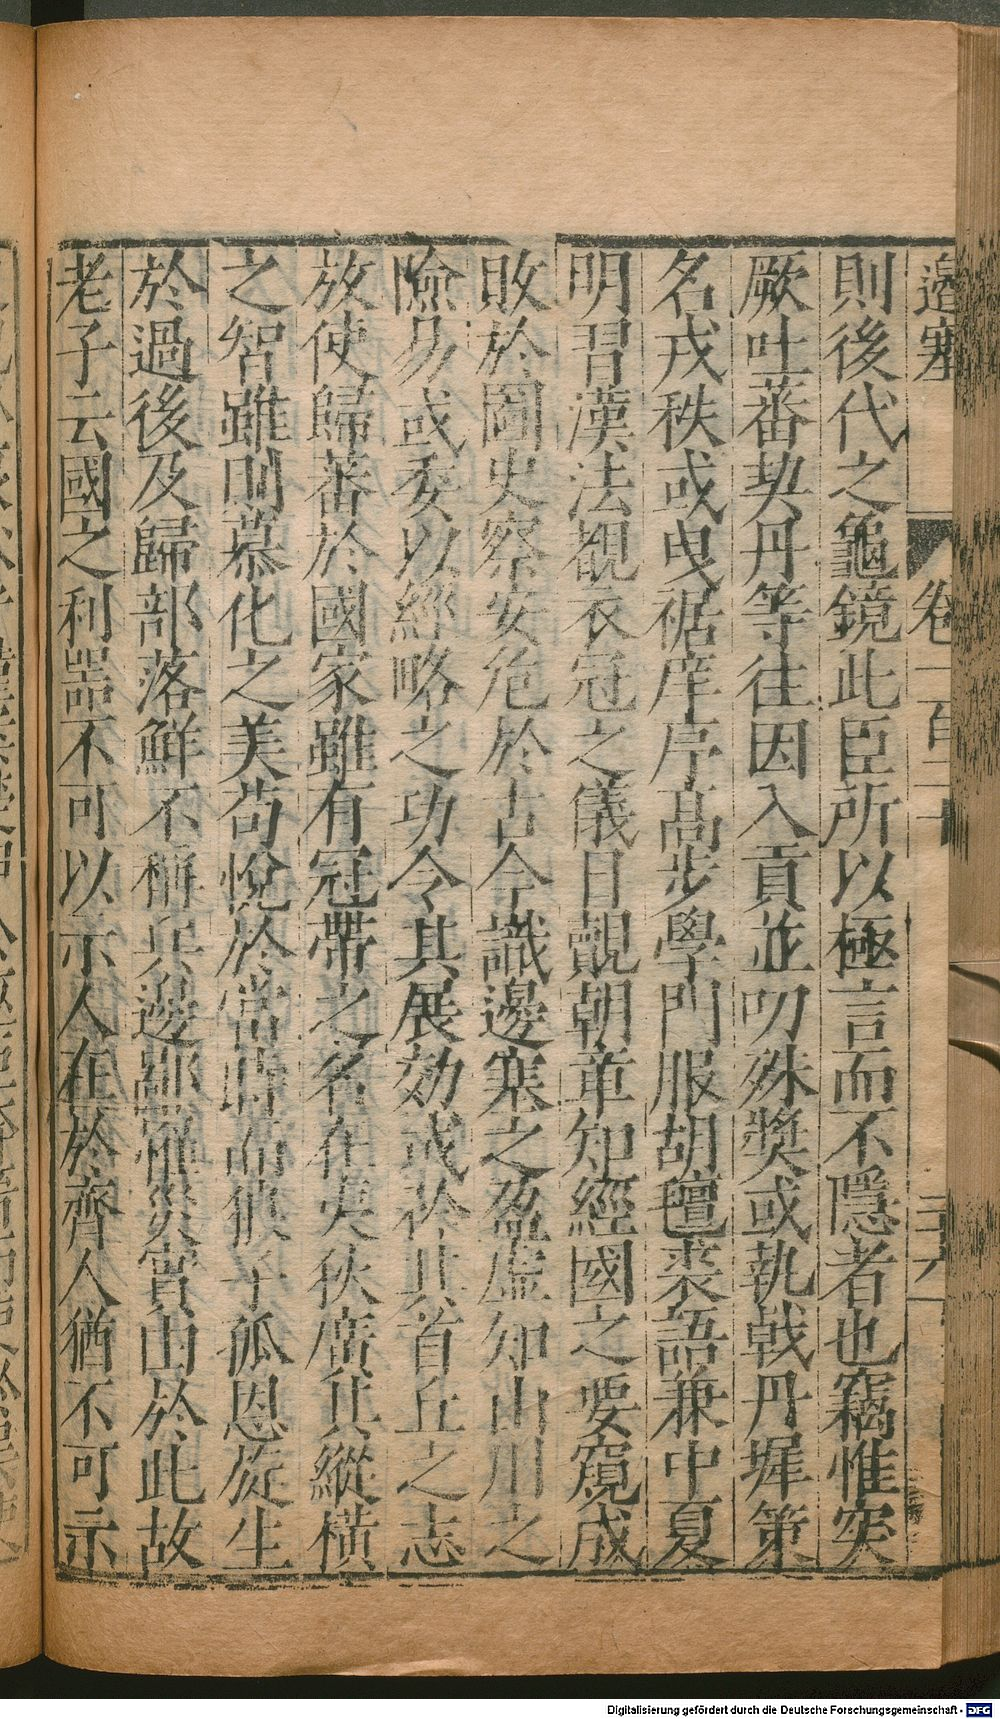 邊塞 卷一百二十 三十六
則後代之龜鏡此臣所以極言而不隱者也竊惟突
厥吐蕃契丹等往因入貢並叨殊獎或執戟丹墀策
名戎秩或曳裾庠序高步學門服胡氊裘語兼中夏
明習漢法覩衣冠之儀目覿朝章知經國之要窺成
敗於圖史察安危於古今識邊塞之盈虛知山川之
險易或委以經略之功令其展効或矜其首丘之志
放使歸蕃於國家雖有冠帶之名在夷狄廣其縱橫
之智雖則慕化之美苟悅於當時而狼子孤恩旋生
於過後及歸部落鮮不稱兵邊鄙罹災實由於此故
老子云國之利器不可以示人在於齊人猶不可示
Digitalisierung gefördert durch die Deutsche Forschungsgemeinschaft - DFG